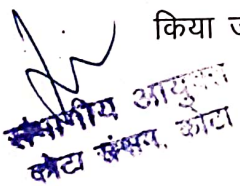 किया ज
संभागीय आयुक्त
कोटा संभाग, कोटा